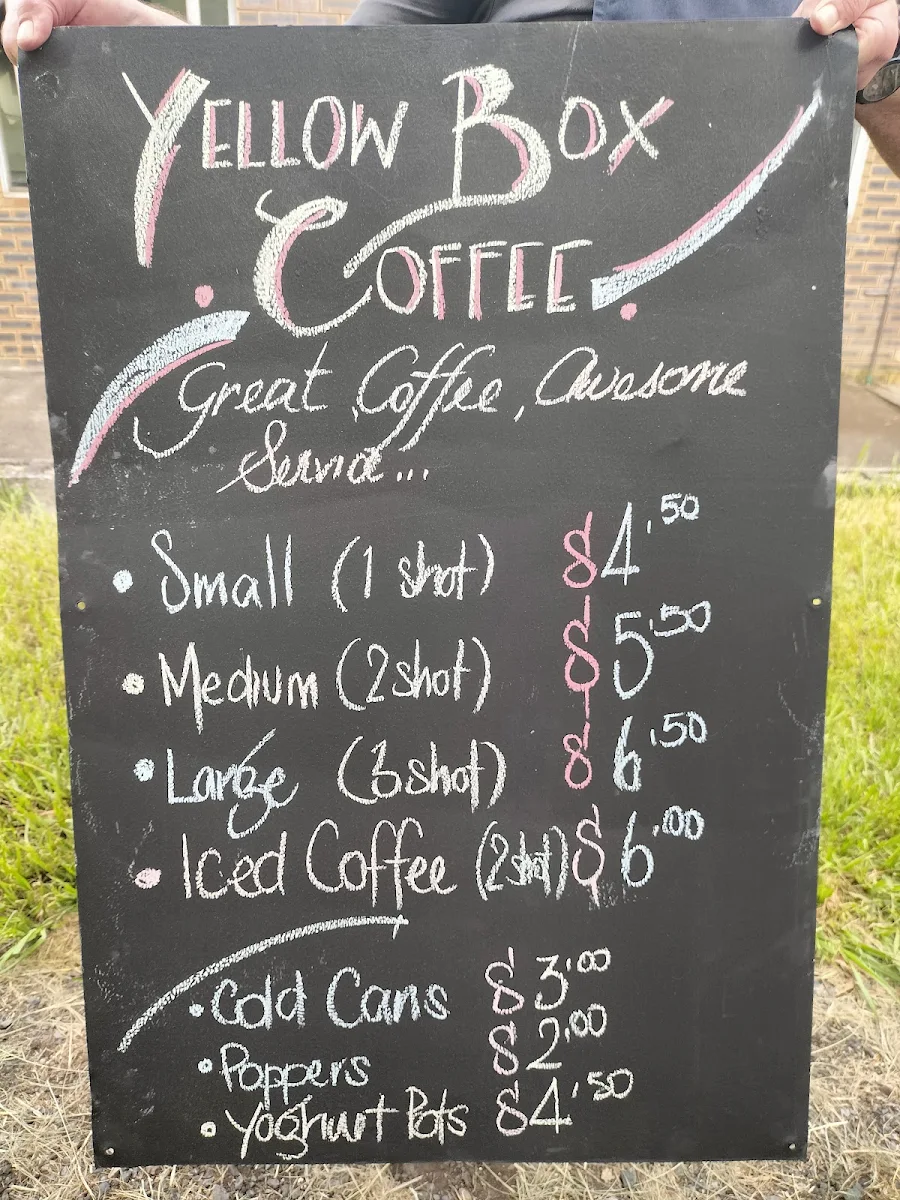 YELLOW BOX
COFFEE
Great Coffee, Awesome
Service...
• Small (1 shot) $4.50
• Medium (2 shot) $5.50
• Large (3 shot) $6.50
• Iced Coffee (2 shot) $6.00
• Cold Cans $3.00
• Poppers $2.00
• Yoghurt Pots $4.50